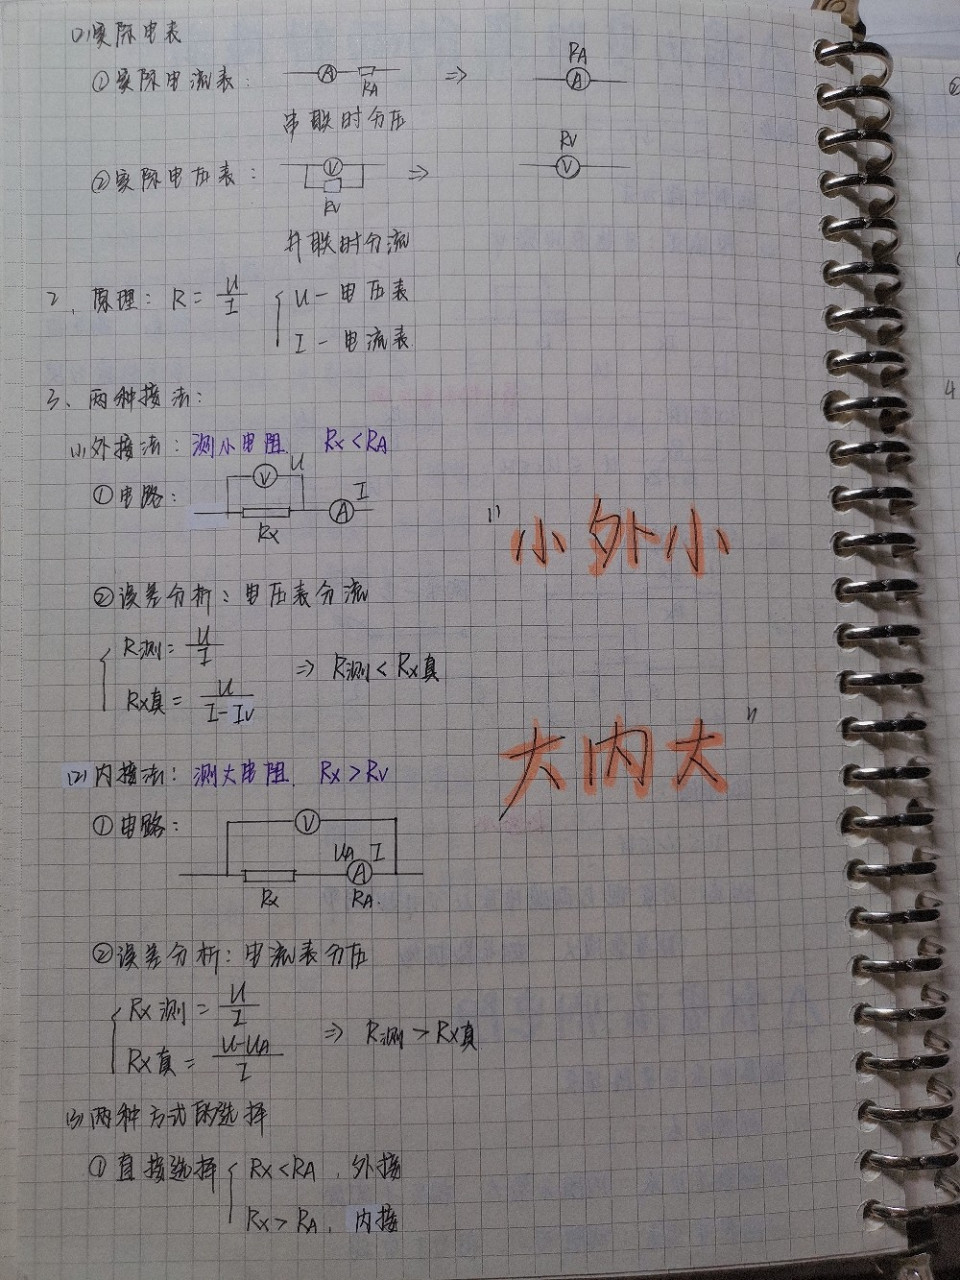 (2)实际电表
①实际电流表: A RA ⇒ RA A
串联时分压
②实际电压表: V RV ⇒ RV V
并联时分流
2、原理: R = U/I { U - 电压表
I - 电流表
3、两种接法:
(1)外接法: 测小电阻. Rx < RA
①电路: V U A I Rx
"小外小
②误差分析: 电压表分流
R测 = U/I
Rx真 = U/(I-Iv) ⇒ R测 < Rx真
大内大"
(2)内接法: 测大电阻. Rx > Rv
①电路: V UA I A Rx RA.
②误差分析: 电流表分压
Rx测 = U/I
Rx真 = (U-UA)/I ⇒ R测 > Rx真
(3)两种方式的选择
①直接选择 { Rx < RA, 外接
Rx > RA, 内接
4